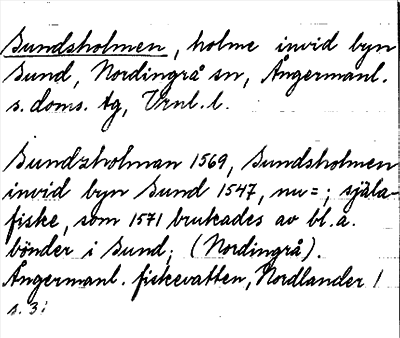 Sundsholmen, holme invid byn
Sund, Nordingrå sn, Ångermanl.
s. doms. tg, Vrnl. l.
Sundzholman 1569, Sundsholmen
invid byn Sund 1547, nu =; själa-
fiske, som 1571 brukades av bl.a.
bönder i Sund; (Nordingrå).
Ångermanl. fiskevatten, Nordlander 1
s. 3;